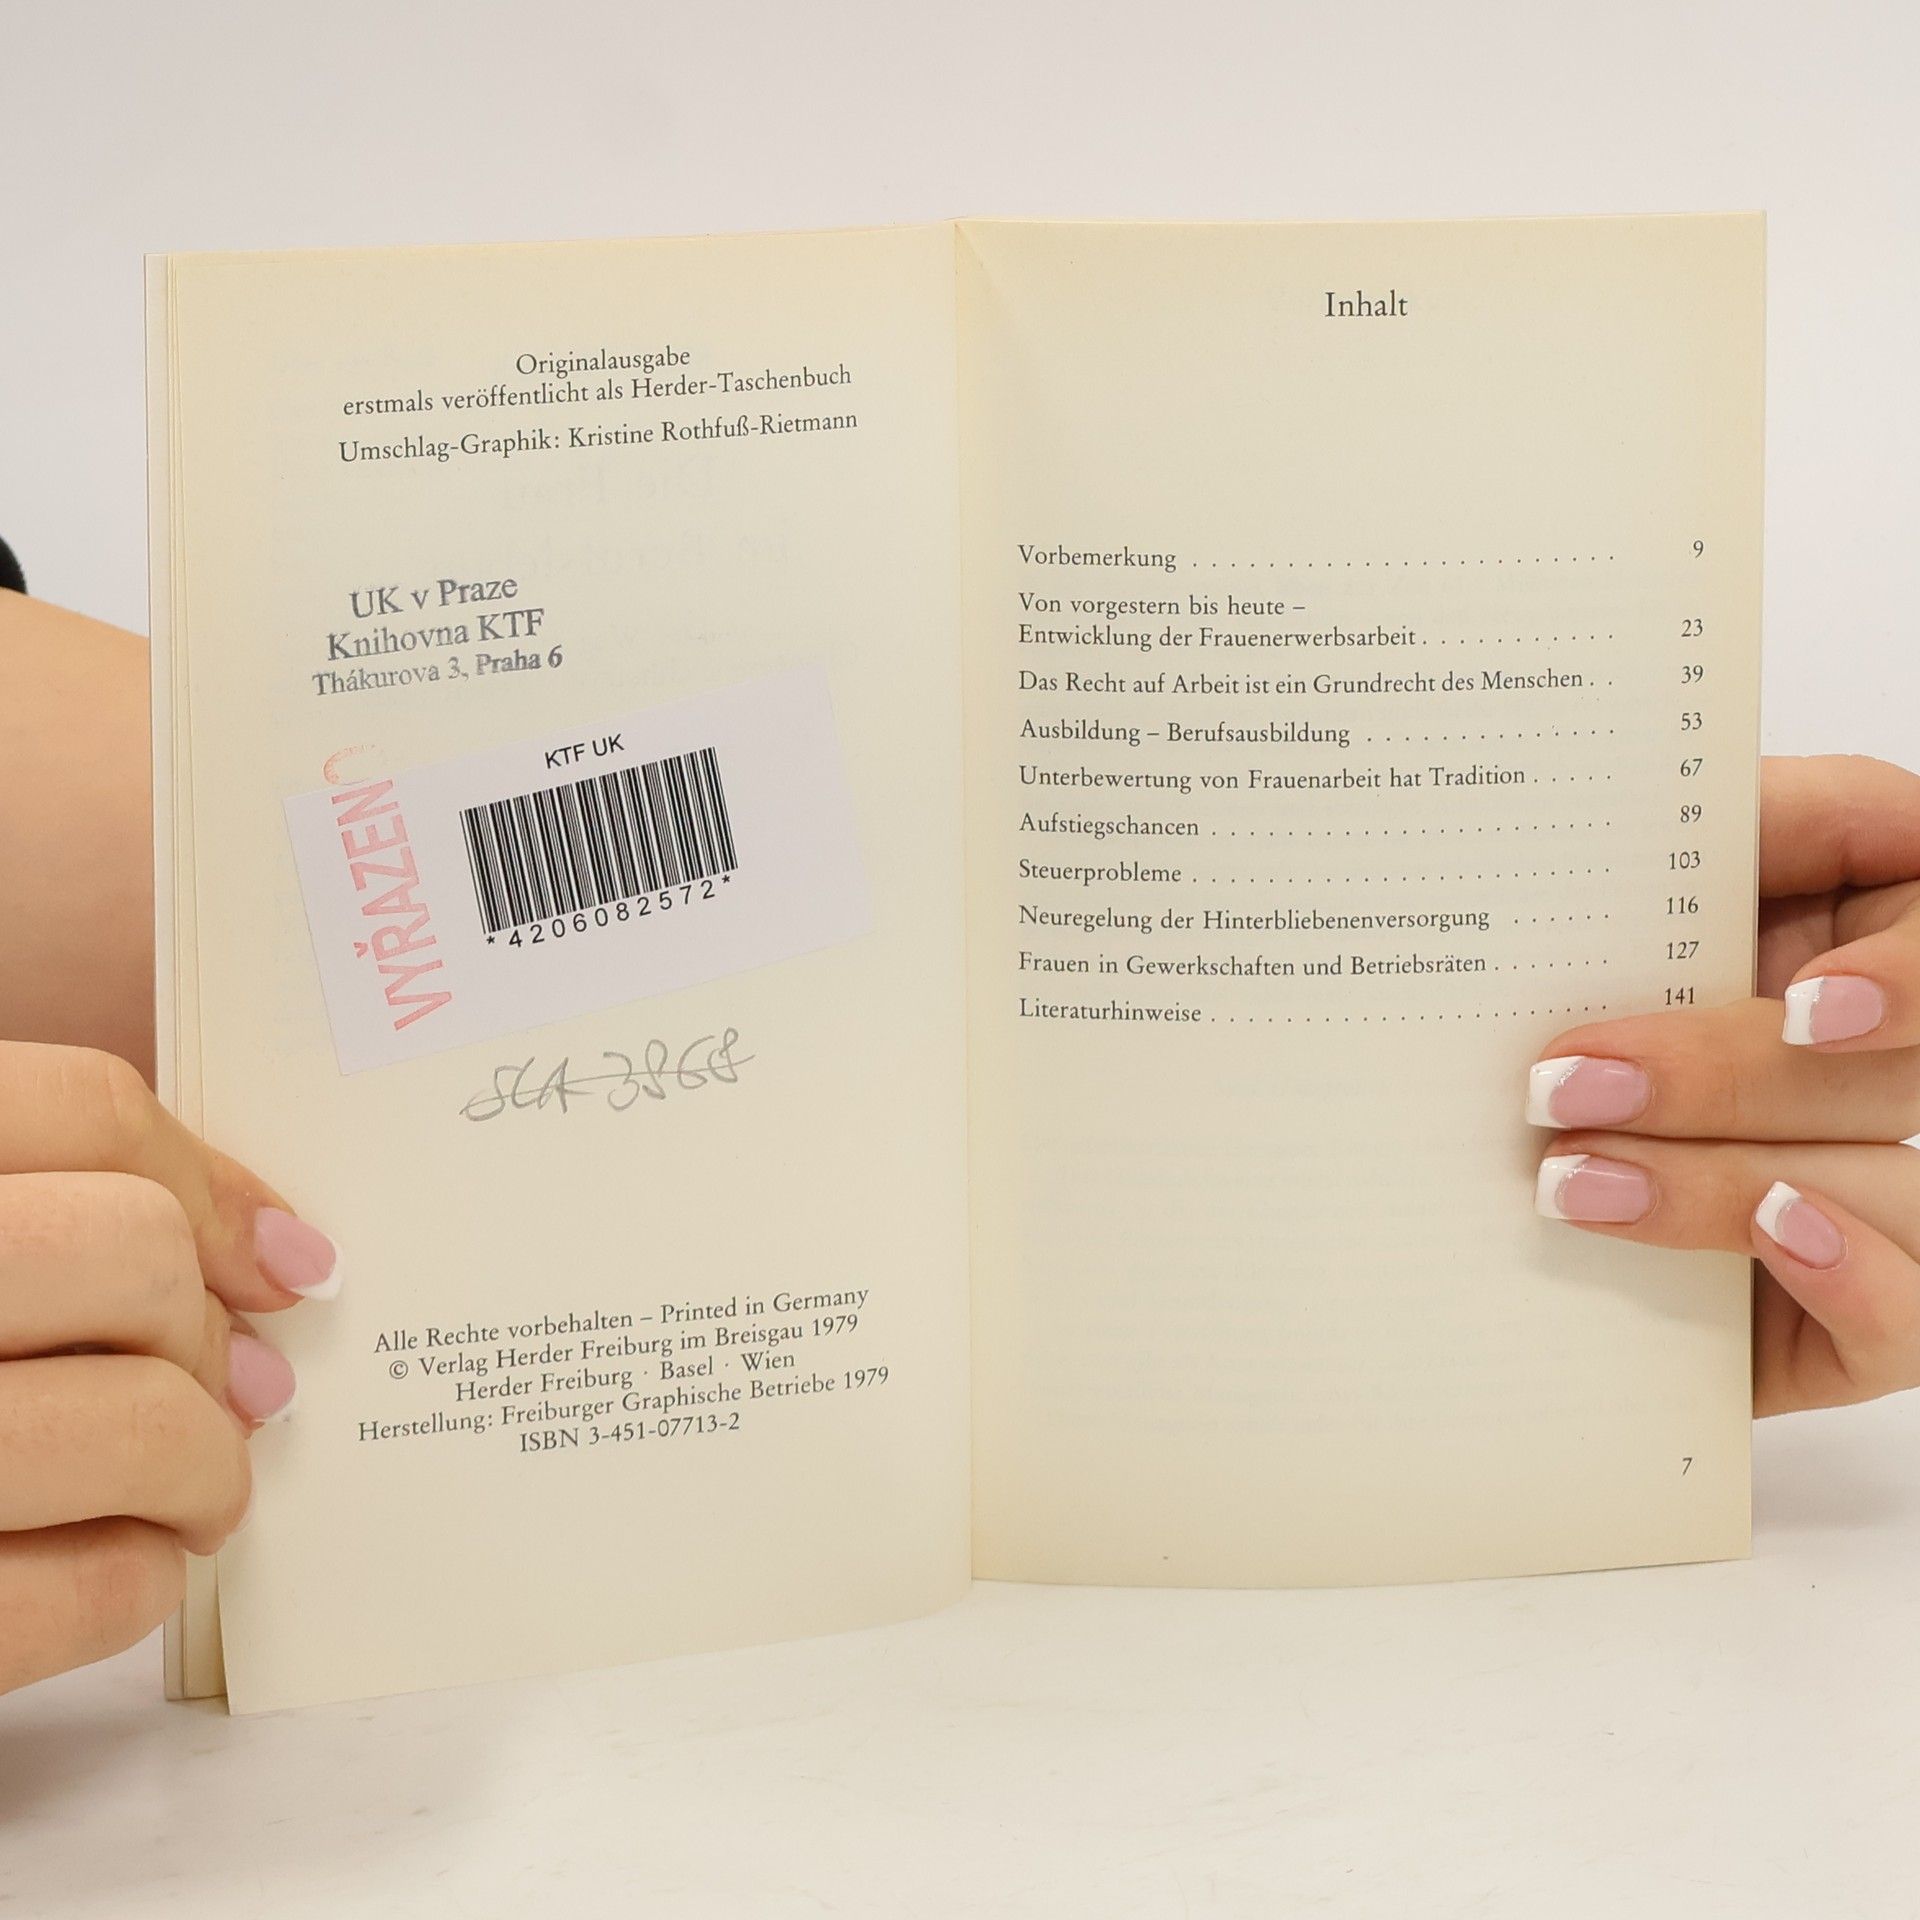 Originalausgabe
erstmals veröffentlicht als Herder-Taschenbuch
Umschlag-Graphik: Kristine Rothfuß-Rietmann
UK v Praze
Knihovna KTF
Thákurova 3, Praha 6
KTF UK
*4206082572*
VYŘAZENO
Alle Rechte vorbehalten – Printed in Germany
© Verlag Herder Freiburg im Breisgau 1979
Herder Freiburg · Basel · Wien
Herstellung: Freiburger Graphische Betriebe 1979
ISBN 3-451-07713-2
Inhalt
Vorbemerkung . . . . . . . . . . . . . . . . . . . . . . . 9
Von vorgestern bis heute –
Entwicklung der Frauenerwerbsarbeit . . . . . . . . . . . 23
Das Recht auf Arbeit ist ein Grundrecht des Menschen . . 39
Ausbildung – Berufsausbildung . . . . . . . . . . . . . . 53
Unterbewertung von Frauenarbeit hat Tradition . . . . . 67
Aufstiegschancen . . . . . . . . . . . . . . . . . . . . . . 89
Steuerprobleme . . . . . . . . . . . . . . . . . . . . . . . 103
Neuregelung der Hinterbliebenenversorgung . . . . . . 116
Frauen in Gewerkschaften und Betriebsräten . . . . . . . 127
Literaturhinweise . . . . . . . . . . . . . . . . . . . . . . 141
7